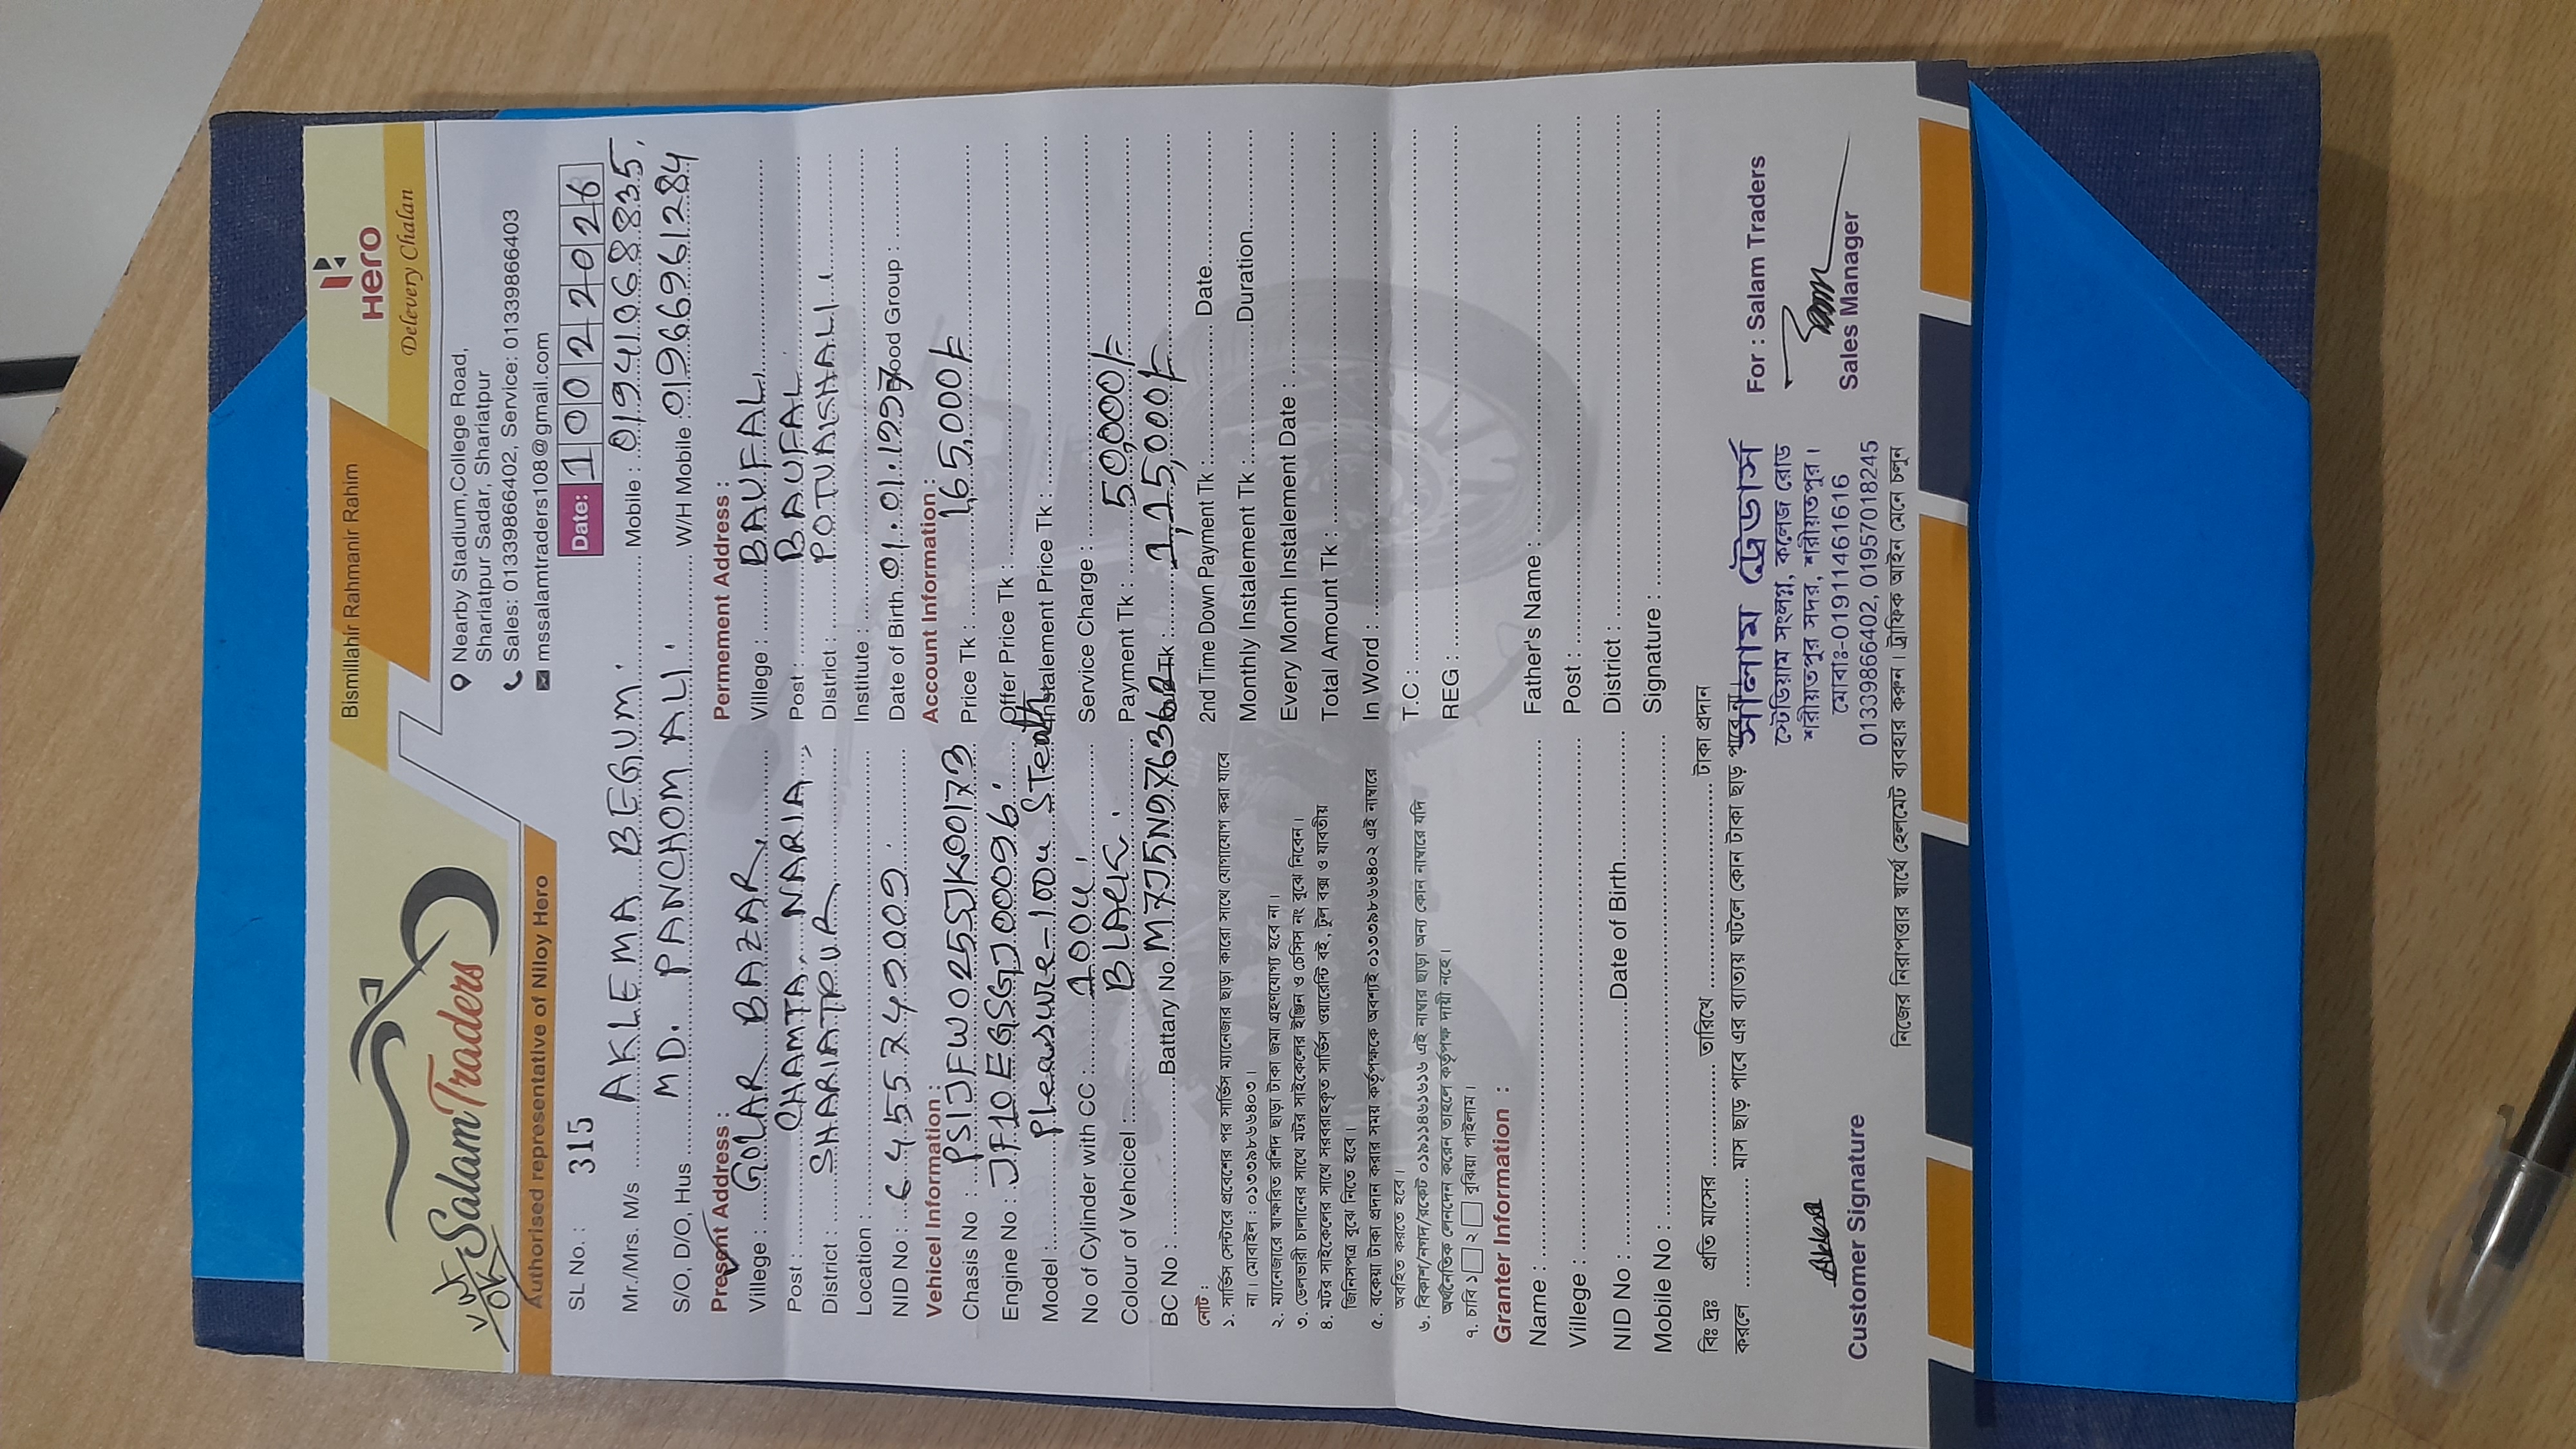 Bismillahir Rahmanir Rahim
Hero
Delevery Chalan
Salam Traders
OK
Authorised representative of Niloy Hero
Nearby Stadium,College Road,
Shariatpur Sadar, Shariatpur
Sales: 01339866402, Service: 01339866403
mssalamtraders108@gmail.com
SL No.: 315 Date: 10022026
Mr./Mrs. M/s AKLEMA BEGUM. Mobile : 01941068835,
S/O, D/O, Hus MD. PANCHOM ALI. W/H Mobile 01966961284
Present Address : Permement Address :
Villege : GOLAR BAZAR, Villege : BAUFAL.
Post : CHAMTA, NARIA, Post : BAUFAL.
District : SHARIATPUR District : POTUAISHALI.
Location : Institute :
NID No : 6455749009. Date of Birth 01.01.1997 Blood Group :
Vehicel Information : Account Information :
Chasis No : PS1JFW025SJK00173 Price Tk : 1,65,000/=
Engine No : JF10EGSGJ00096. Offer Price Tk :
Model : Pleasure-100cc STealth Instalement Price Tk :
No of Cylinder with CC : 100cc, Service Charge :
Colour of Vehcicel : BLACK. Payment Tk : 50,000/=
BC No : Battary No. M7J5N97636 Tk : 1,15,000/=
2nd Time Down Payment Tk : Date
Monthly Instalement Tk : Duration
Every Month Instalement Date :
Total Amount Tk :
In Word :
T.C :
REG :
নোট :
১. সার্ভিস সেন্টারে প্রবেশের পর সার্ভিস ম্যানেজার ছাড়া কারো সাথে যোগাযোগ করা যাবে
না। মোবাইল : ০১৩৩৯৮৬৬৪০৩।
২. ম্যানেজারে স্বাক্ষরিত রশিদ ছাড়া টাকা জমা গ্রহণযোগ্য হবে না।
৩. ডেলভারী চালানের সাথে মটর সাইকেলের ইঞ্জিন ও চেসিস নং বুঝে নিবেন।
৪. মটর সাইকেলের সাথে সরবরাহকৃত সার্ভিস ওয়ারেন্টি বই, টুল বক্স ও যাবতীয়
জিনিসপত্র বুঝে নিতে হবে।
৫. বকেয়া টাকা প্রদান করার সময় কর্তৃপক্ষকে অবশ্যই ০১৩৩৯৮৬৬৪০২ এই নাম্বারে
অবহিত করতে হবে।
৬. বিকাশ/নগদ/রকেট ০১৯১১৪৬১৬১৬ এই নাম্বার ছাড়া অন্য কোন নাম্বারে যদি
অর্থনৈতিক লেনদেন করেন তাহলে কর্তৃপক্ষ দায়ী নহে।
৭. চাবি ১ ২ বুঝিয়া পাইলাম।
Granter Information :
Name : Father's Name :
Villege : Post :
NID No : Date of Birth District :
Mobile No : Signature :
বিঃ দ্রঃ প্রতি মাসের তারিখে টাকা প্রদান
করলে মাস ছাড় পাবে এর ব্যাত্যয় ঘটলে কোন টাকা ছাড় পাবে না।
সালাম ট্রেডার্স
স্টেডিয়াম সংলগ্ন, কলেজ রোড
শরীয়তপুর সদর, শরীয়তপুর।
মোবাঃ-01911461616
01339866402, 01957018245
For : Salam Traders
Sales Manager
Customer Signature
নিজের নিরাপত্তার স্বার্থে হেলমেট ব্যবহার করুন। ট্রাফিক আইন মেনে চলুন